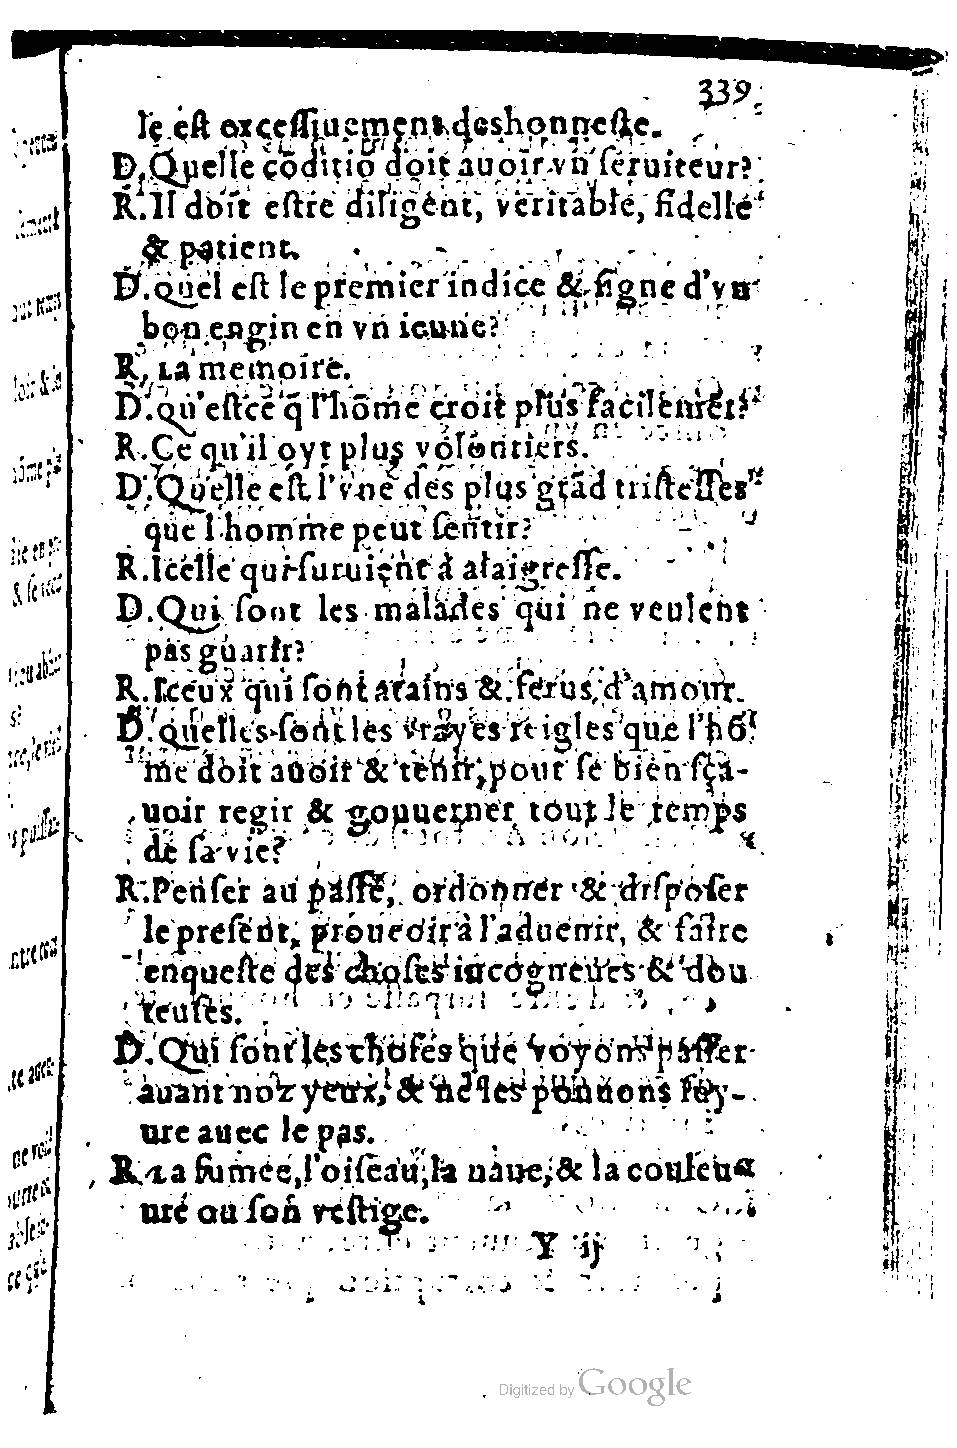 339
le est excessiuement deshonneste.
D. Quelle cōditiō doit auoir vn seruiteur?
R. Il doit estre diligent, veritable, fidelle
& patient.
D. quel est le premier indice & signe d'vn
bon engin en vn ieune?
R, La memoire.
D. qu'estce q̄ l'hōme croit plus facilemēt?
R. Ce qu'il oyt plus volontiers.
D. Quelle est l'vne des plus grād tristesses
que l'homme peut sentir?
R. Icelle qui suruient à alaigresse.
D. Qui sont les malades qui ne veulent
pas guarir?
R. Iceux qui sont atains & ferus d'amour.
D. quelles sont les vrayes reigles que l'hō
me doit auoir & tenir, pour se bien sça-
uoir regir & gouuerner tout le temps
de sa vie?
R. Penser au passé, ordonner & disposer
le present, proueoir à l'aduenir, & faire
enqueste des choses incogneues & dou
teuses.
D. Qui sont les choses que voyons passer
auant noz yeux, & ne les pouuons suy-
ure auec le pas.
R. La fumee, l'oiseau, la naue, & la couleu
ure ou son vestige.
Y ij
Digitized by Google